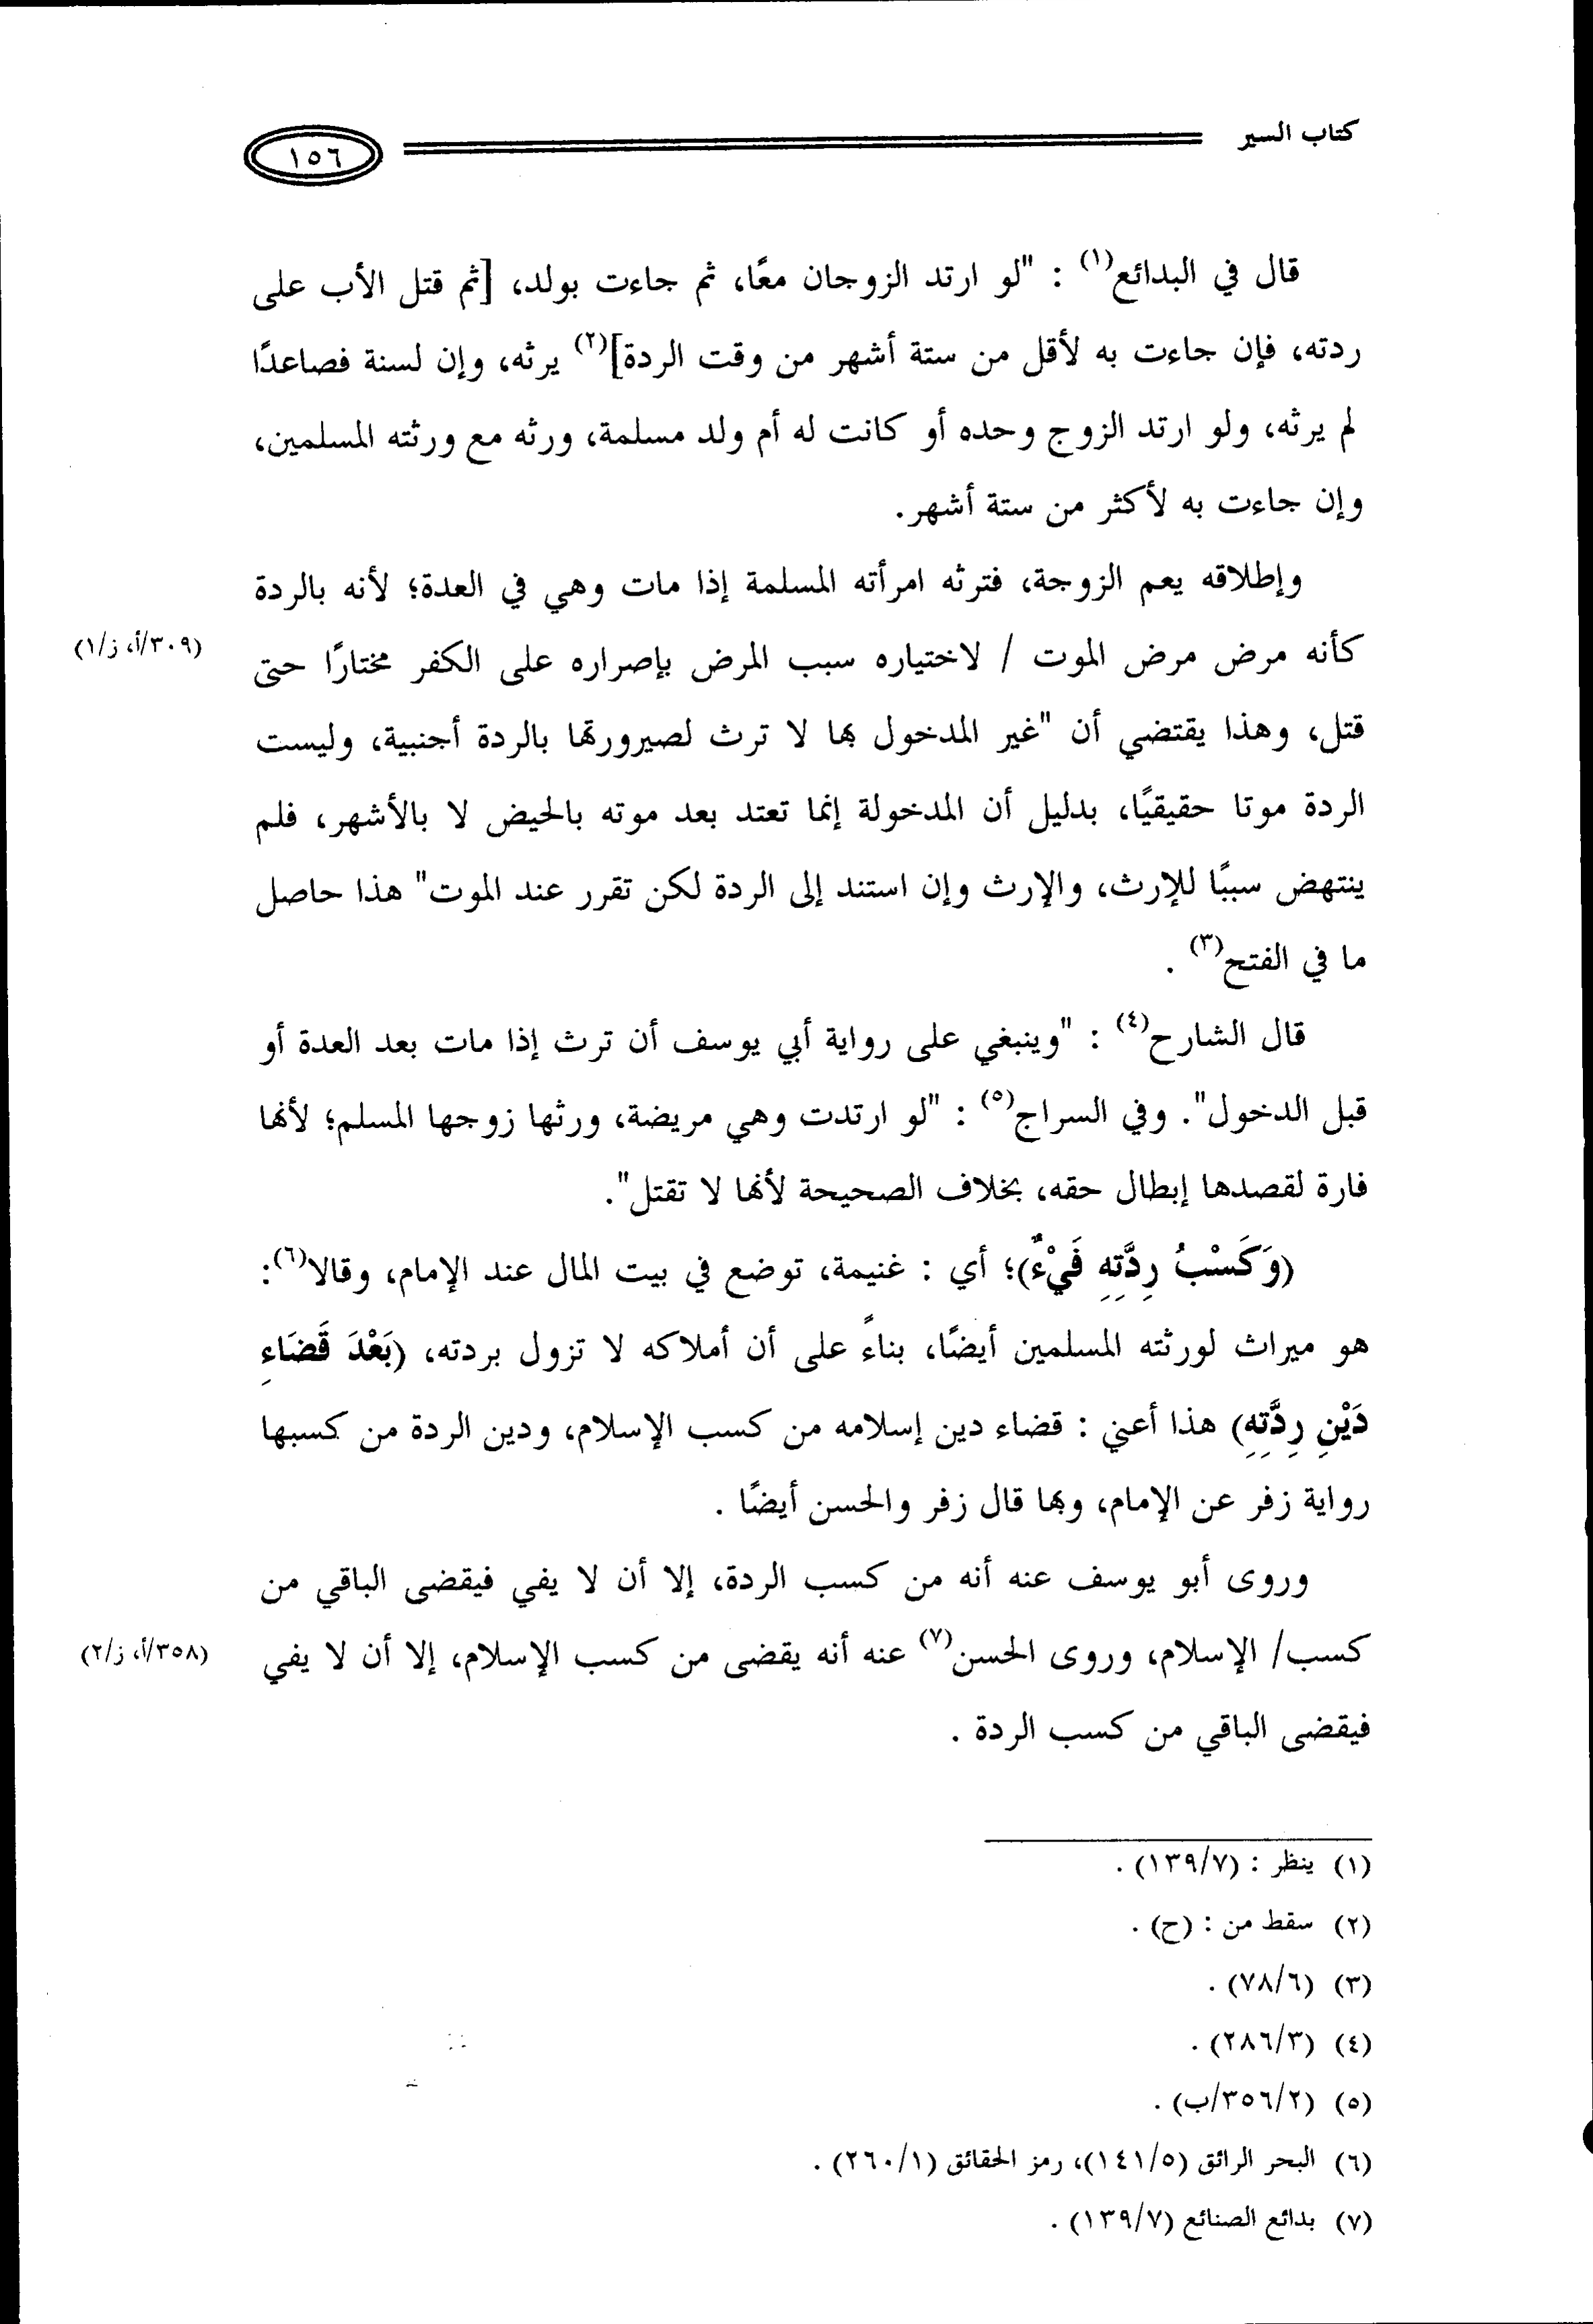 كتاب السير
١٥٦
قال في البدائع(١) : "لو ارتد الزوجان معًا، ثم جاءت بولد، [ثم قتل الأب على
ردته، فإن جاءت به لأقل من ستة أشهر من وقت الردة](٢) يرثه، وإن لسنة فصاعدًا
لم يرثه، ولو ارتد الزوج وحده أو كانت له أم ولد مسلمة، ورثه مع ورثته المسلمين،
وإن جاءت به لأكثر من ستة أشهر.
وإطلاقه يعم الزوجة، فترثه امرأته المسلمة إذا مات وهي في العدة؛ لأنه بالردة
كأنه مرض مرض الموت / لاختياره سبب المرض بإصراره على الكفر مختارًا حتى
(٣٠٩/أ، ز/١)
قتل، وهذا يقتضي أن "غير المدخول بها لا ترث لصيرورتها بالردة أجنبية، وليست
الردة موتا حقيقيًا، بدليل أن المدخولة إنما تعتد بعد موته بالحيض لا بالأشهر، فلم
ينتهض سببًا للإرث، والإرث وإن استند إلى الردة لكن تقرر عند الموت" هذا حاصل
ما في الفتح(٣) .
قال الشارح(٤) : "وينبغي على رواية أبي يوسف أن ترث إذا مات بعد العدة أو
قبل الدخول". وفي السراج(٥) : "لو ارتدت وهي مريضة، ورثها زوجها المسلم؛ لأنها
فارة لقصدها إبطال حقه، بخلاف الصحيحة لأنها لا تقتل".
(وَكَسْبُ رِدَّتِهِ فَيْءٌ)؛ أي : غنيمة، توضع في بيت المال عند الإمام، وقالا(٦):
هو ميراث لورثته المسلمين أيضًا، بناءً على أن أملاكه لا تزول بردته، (بَعْدَ قَضَاءِ
دَيْنِ رِدَّتِهِ) هذا أعني : قضاء دين إسلامه من كسب الإسلام، ودين الردة من كسبها
رواية زفر عن الإمام، وبها قال زفر والحسن أيضًا .
وروى أبو يوسف عنه أنه من كسب الردة، إلا أن لا يفي فيقضى الباقي من
كسب/ الإسلام، وروى الحسن(٧) عنه أنه يقضى من كسب الإسلام، إلا أن لا يفي
(٣٥٨/أ، ز/٢)
فيقضى الباقي من كسب الردة .
(١) ينظر : (١٣٩/٧) .
(٢) سقط من : (ح) .
(٣) (٧٨/٦) .
(٤) (٢٨٦/٣) .
(٥) (٣٥٦/٢/ب) .
(٦) البحر الرائق (١٤١/٥)، رمز الحقائق (٢٦٠/١) .
(٧) بدائع الصنائع (١٣٩/٧) .